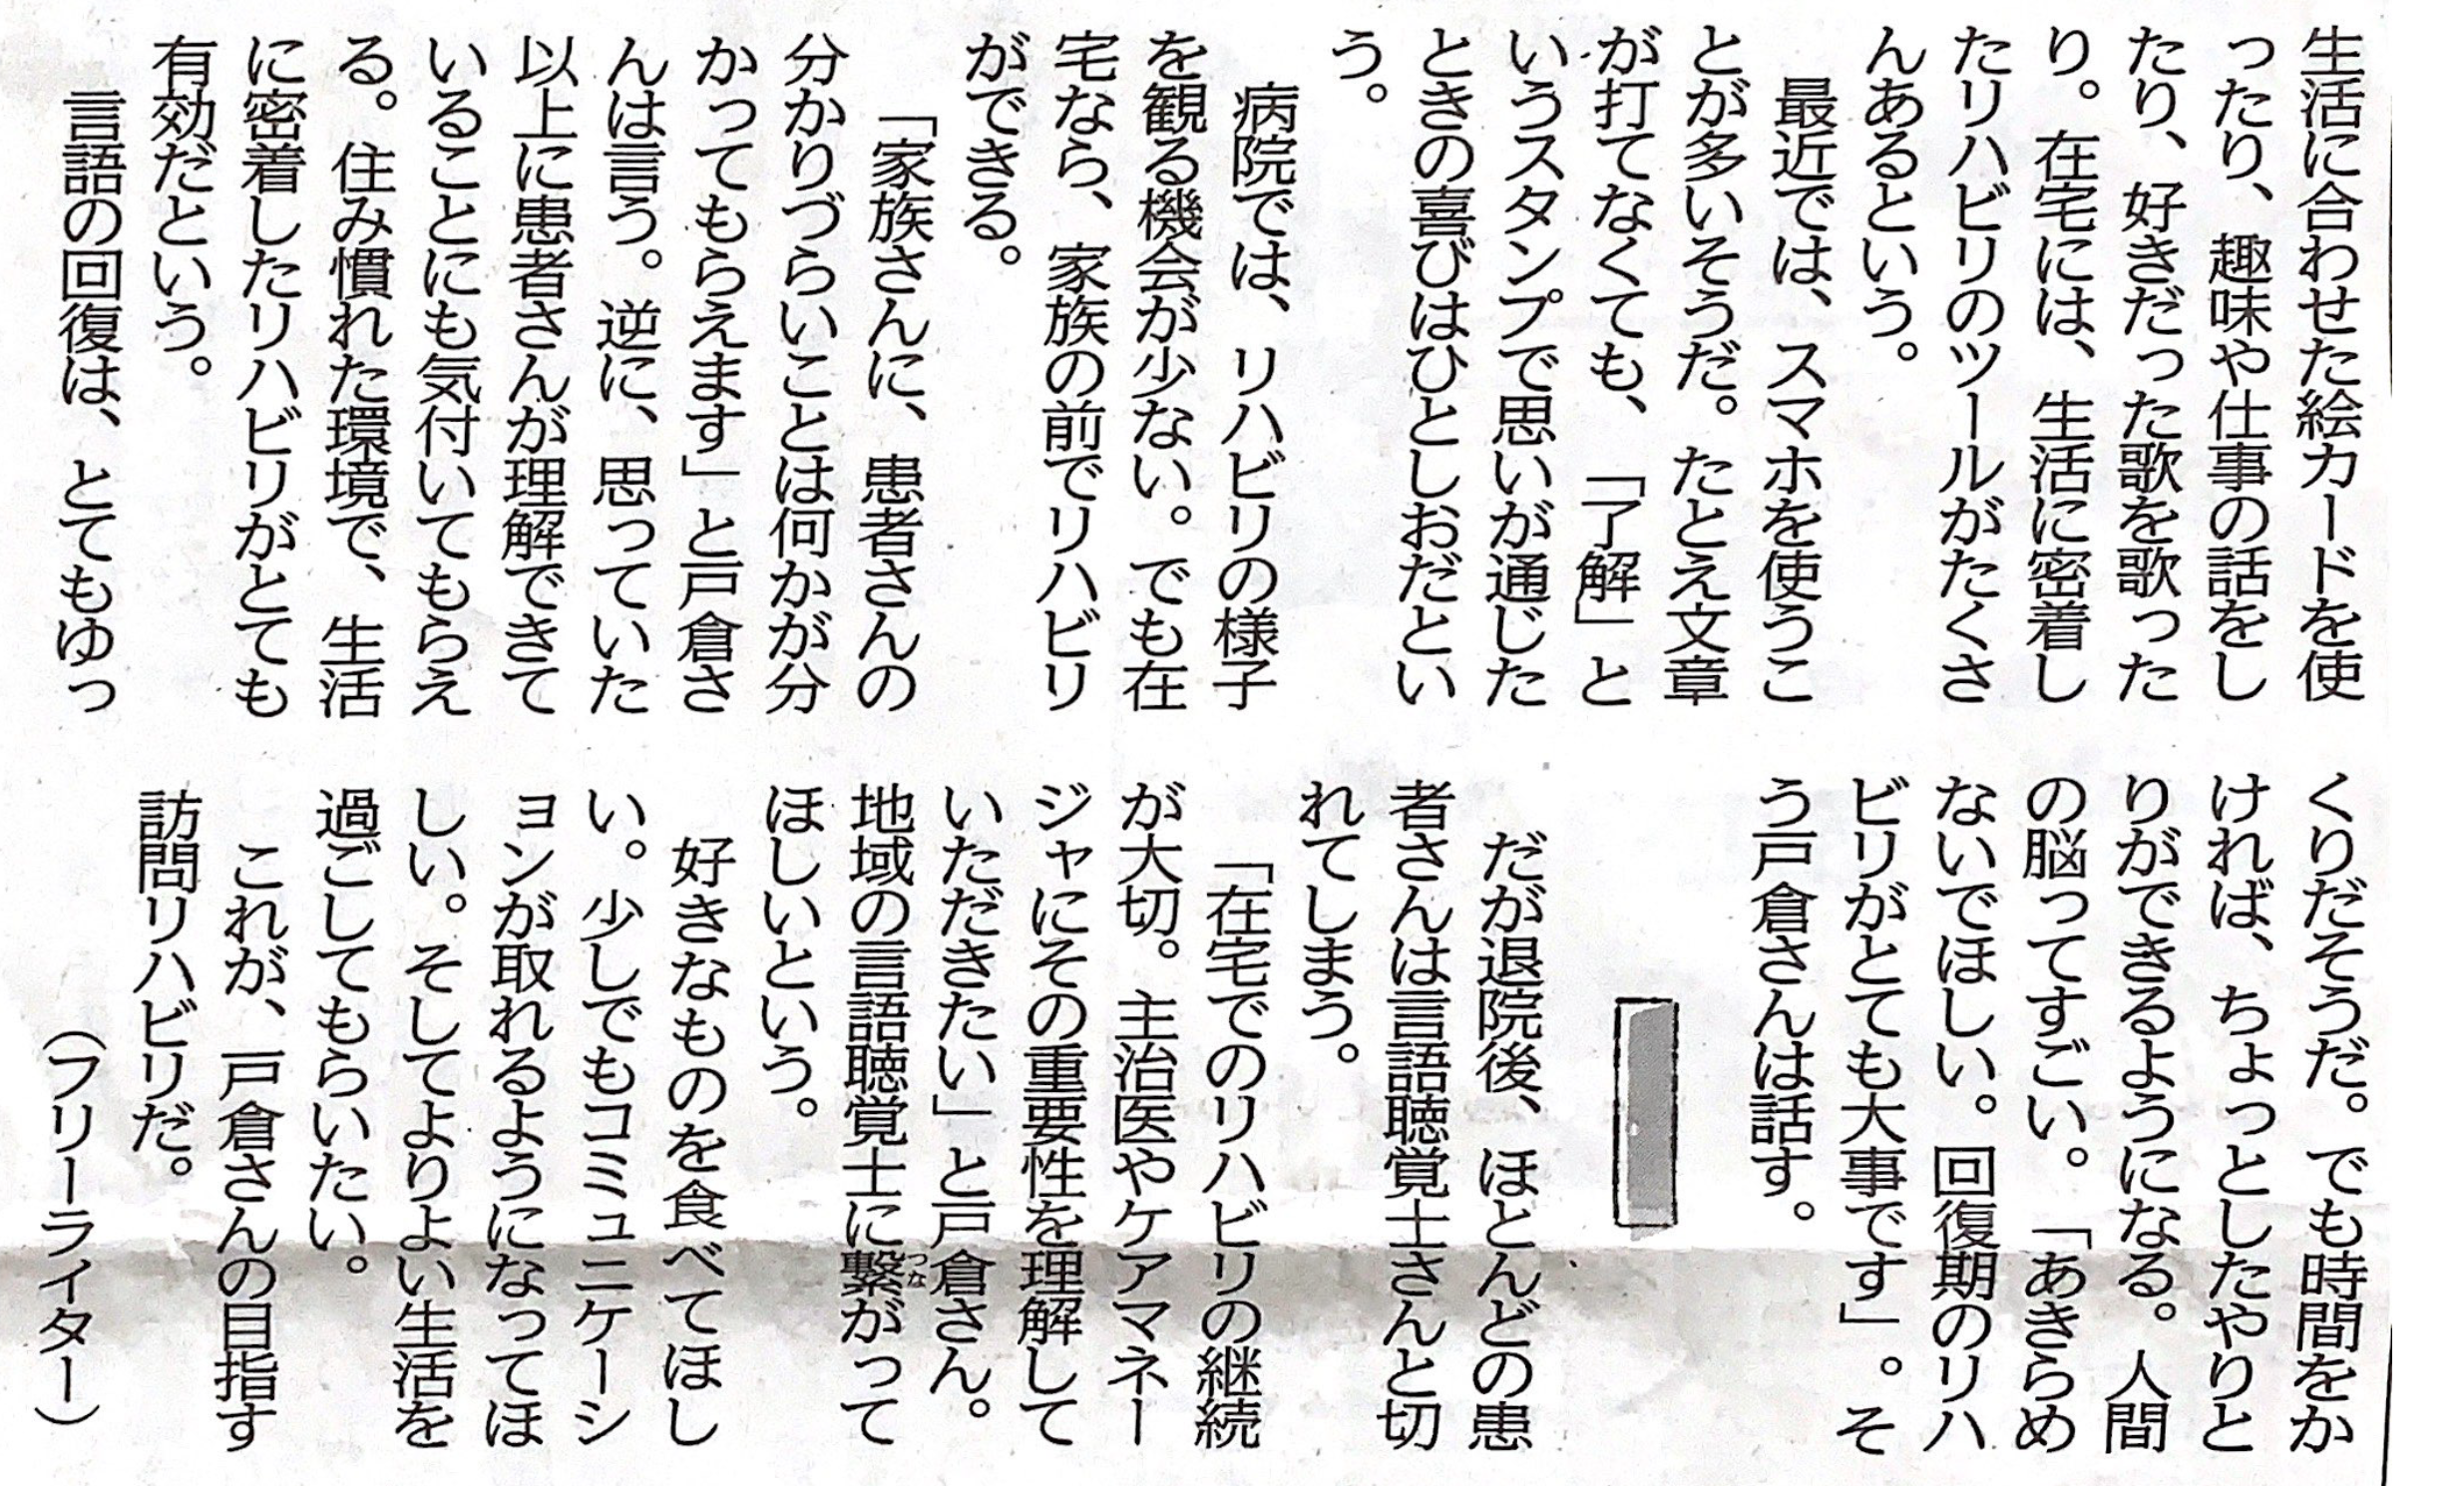 生活に合わせた絵カードを使
ったり、趣味や仕事の話をし
たり、好きだった歌を歌った
り。在宅には、生活に密着し
たリハビリのツールがたくさ
んあるという。
最近では、スマホを使うこ
とが多いそうだ。たとえ文章
が打てなくても、「了解」と
いうスタンプで思いが通じた
ときの喜びはひとしおだとい
う。
病院では、リハビリの様子
を観る機会が少ない。でも在
宅なら、家族の前でリハビリ
ができる。
「家族さんに、患者さんの
分かりづらいことは何かが分
かってもらえます」と戸倉さ
んは言う。逆に、思っていた
以上に患者さんが理解できて
いることにも気付いてもらえ
る。住み慣れた環境で、生活
に密着したリハビリがとても
有効だという。
言語の回復は、とてもゆっ
くりだそうだ。でも時間をか
ければ、ちょっとしたやりと
りができるようになる。人間
の脳ってすごい。「あきらめ
ないでほしい。回復期のリハ
ビリがとても大事です」。そ
う戸倉さんは話す。
だが退院後、ほとんどの患
者さんは言語聴覚士さんと切
れてしまう。
「在宅でのリハビリの継続
が大切。主治医やケアマネー
ジャにその重要性を理解して
いただきたい」と戸倉さん。
地域の言語聴覚士に繋つながって
ほしいという。
好きなものを食べてほし
い。少しでもコミュニケーシ
ョンが取れるようになってほ
しい。そしてよりよい生活を
過ごしてもらいたい。
これが、戸倉さんの目指す
訪問リハビリだ。
（フリーライター）